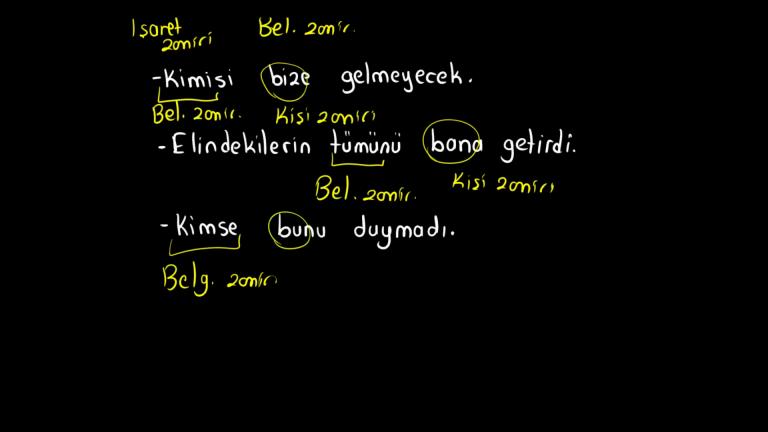 İşaret Bel. zamir.
zamiri
-Kimisi bize gelmeyecek.
Bel. zamir. Kişi zamiri
-Elindekilerin tümünü bana getirdi.
Bel. zamir. Kişi zamiri
-Kimse bunu duymadı.
Belg. zamiri